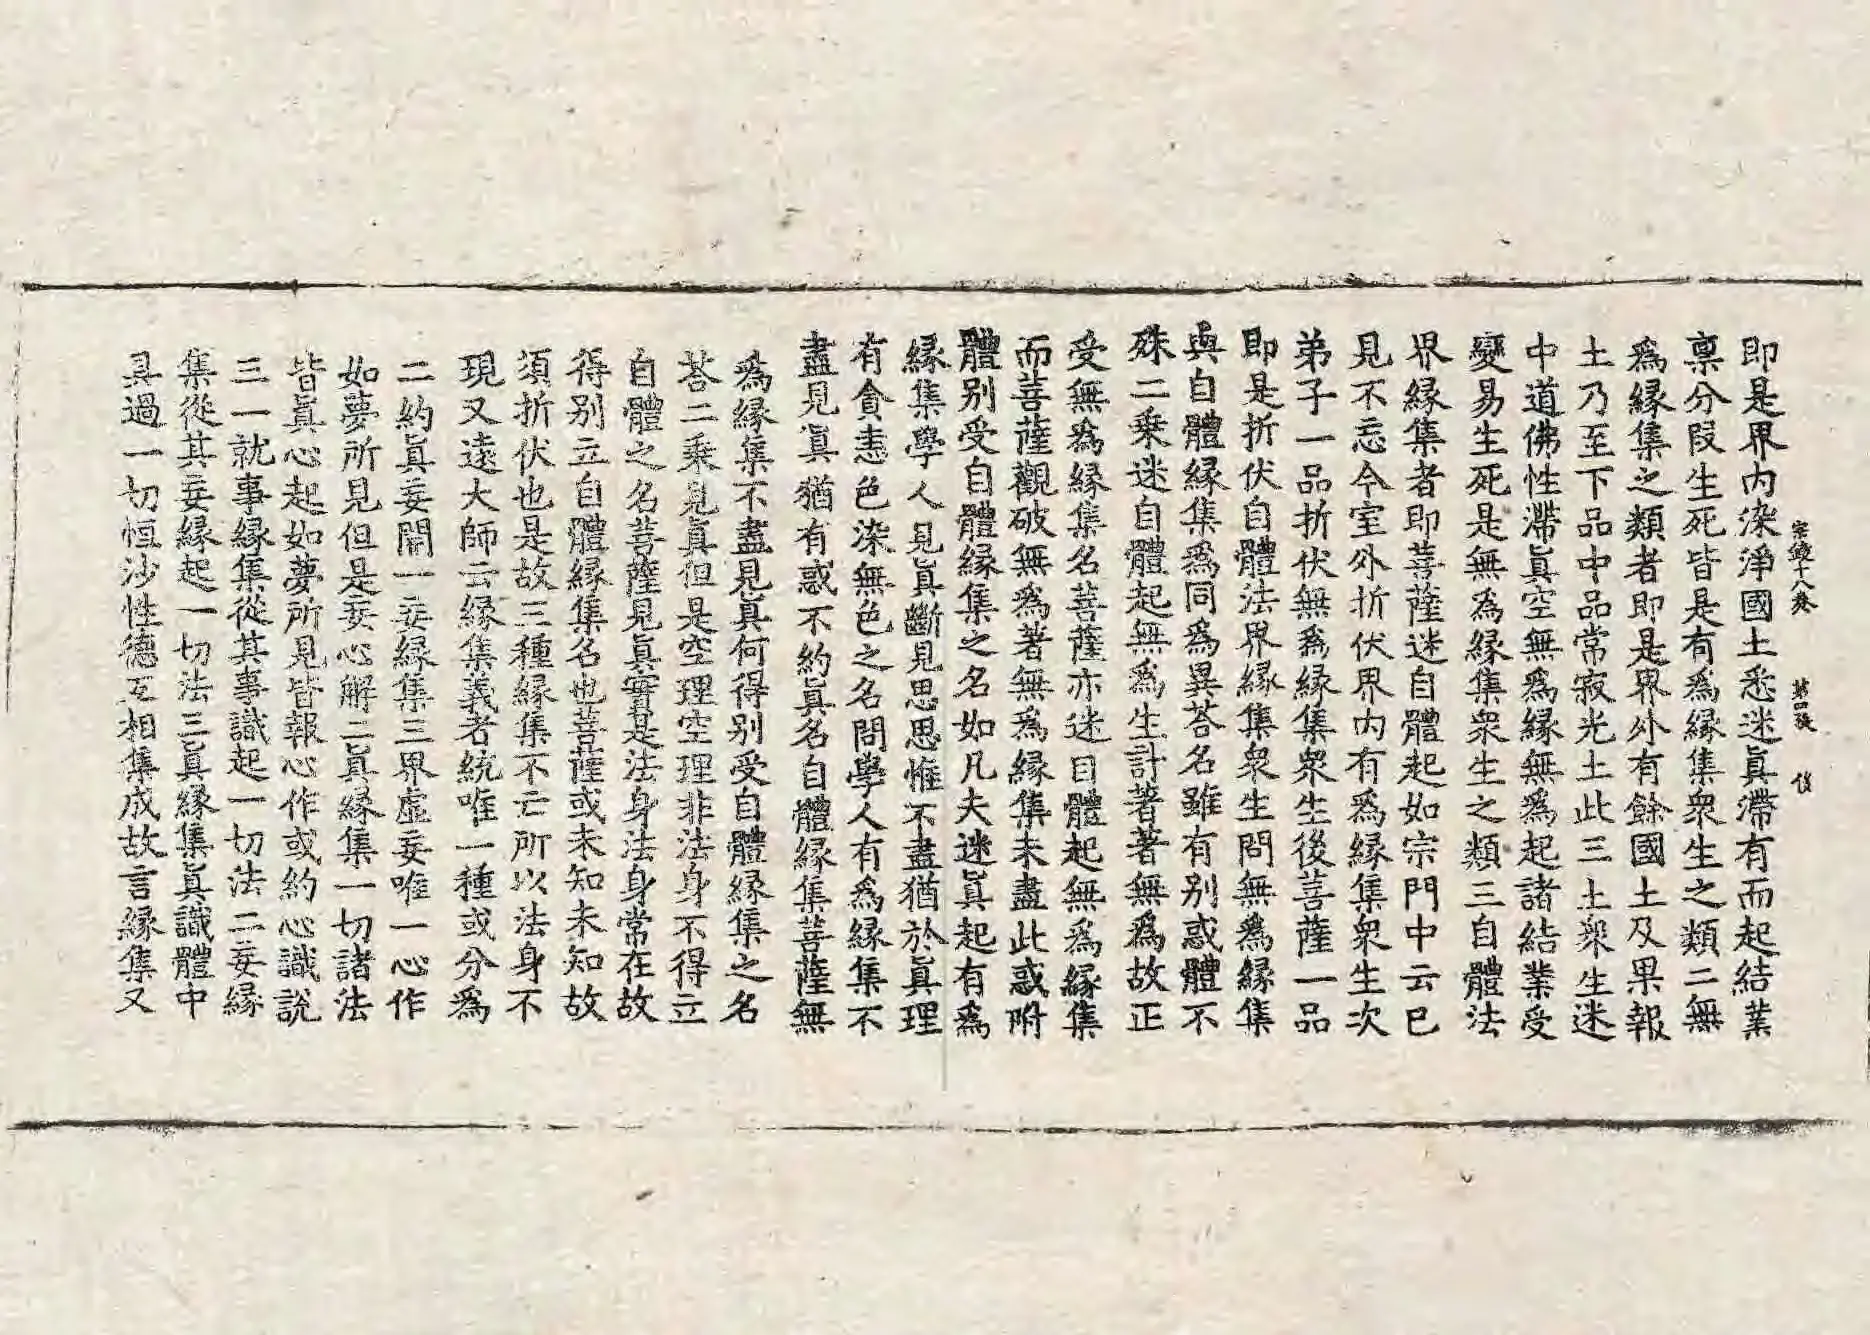 宗鏡十八卷 第四張
即是界内染淨國土悉迷眞滯有而起結業
稟分段生死皆是有爲縁集衆生之類二無
爲縁集之類者即是界外有餘國土及果報
土乃至下品中品常寂光土此三土衆生迷
中道佛性滯眞空無爲縁無爲起諸結業受
變易生死是無爲縁集衆生之類三自體法
界縁集者即菩薩迷自體起如宗門中云已
見不忘今室外折伏界内有爲縁集衆生次
弟子一品折伏無爲縁集衆生後菩薩一品
即是折伏自體法界縁集衆生問無爲縁集
與自體縁集爲同爲異荅名雖有別惑體不
殊二乗迷自體起無爲生計著著無爲故正
受無爲縁集名菩薩亦迷自體起無爲縁集
而菩薩觀破無爲著無爲縁集未盡此惑附
體別受自體縁集之名如凡夫迷眞起有爲
縁集學人見眞斷見思思惟不盡猶於眞理
有貪恚色染無色之名問學人有爲縁集不
盡見眞猶有惑不約眞名自體縁集菩薩無
爲縁集不盡見眞何得別受自體縁集之名
荅二乗見眞但是空理空理非法身不得立
自體之名菩薩見眞實是法身法身常在故
得別立自體縁集名也菩薩或未知未知故
須折伏也是故三種縁集不亡所以法身不
現又遠大師云縁集義者統唯一種或分爲
二約眞妄開一妄縁集三界虚妄唯一心作
如夢所見但是妄心解二眞縁集一切諸法
皆眞心起如夢所見皆報心作或約心識説
三一就事縁集從其事識起一切法二妄縁
集從其妄縁起一切法三眞縁集眞識體中
具過一切恒沙性德互相集成故言縁集又